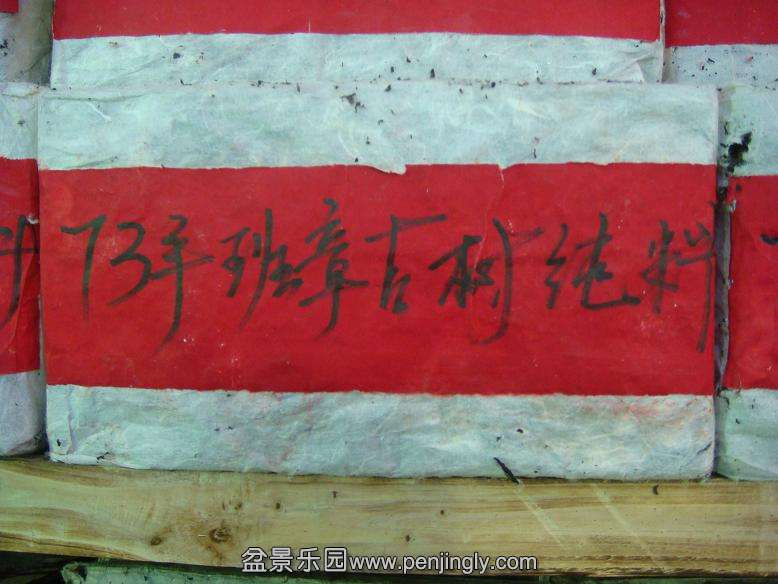 73年班章古树纯料
盆景乐园www.penjingly.com